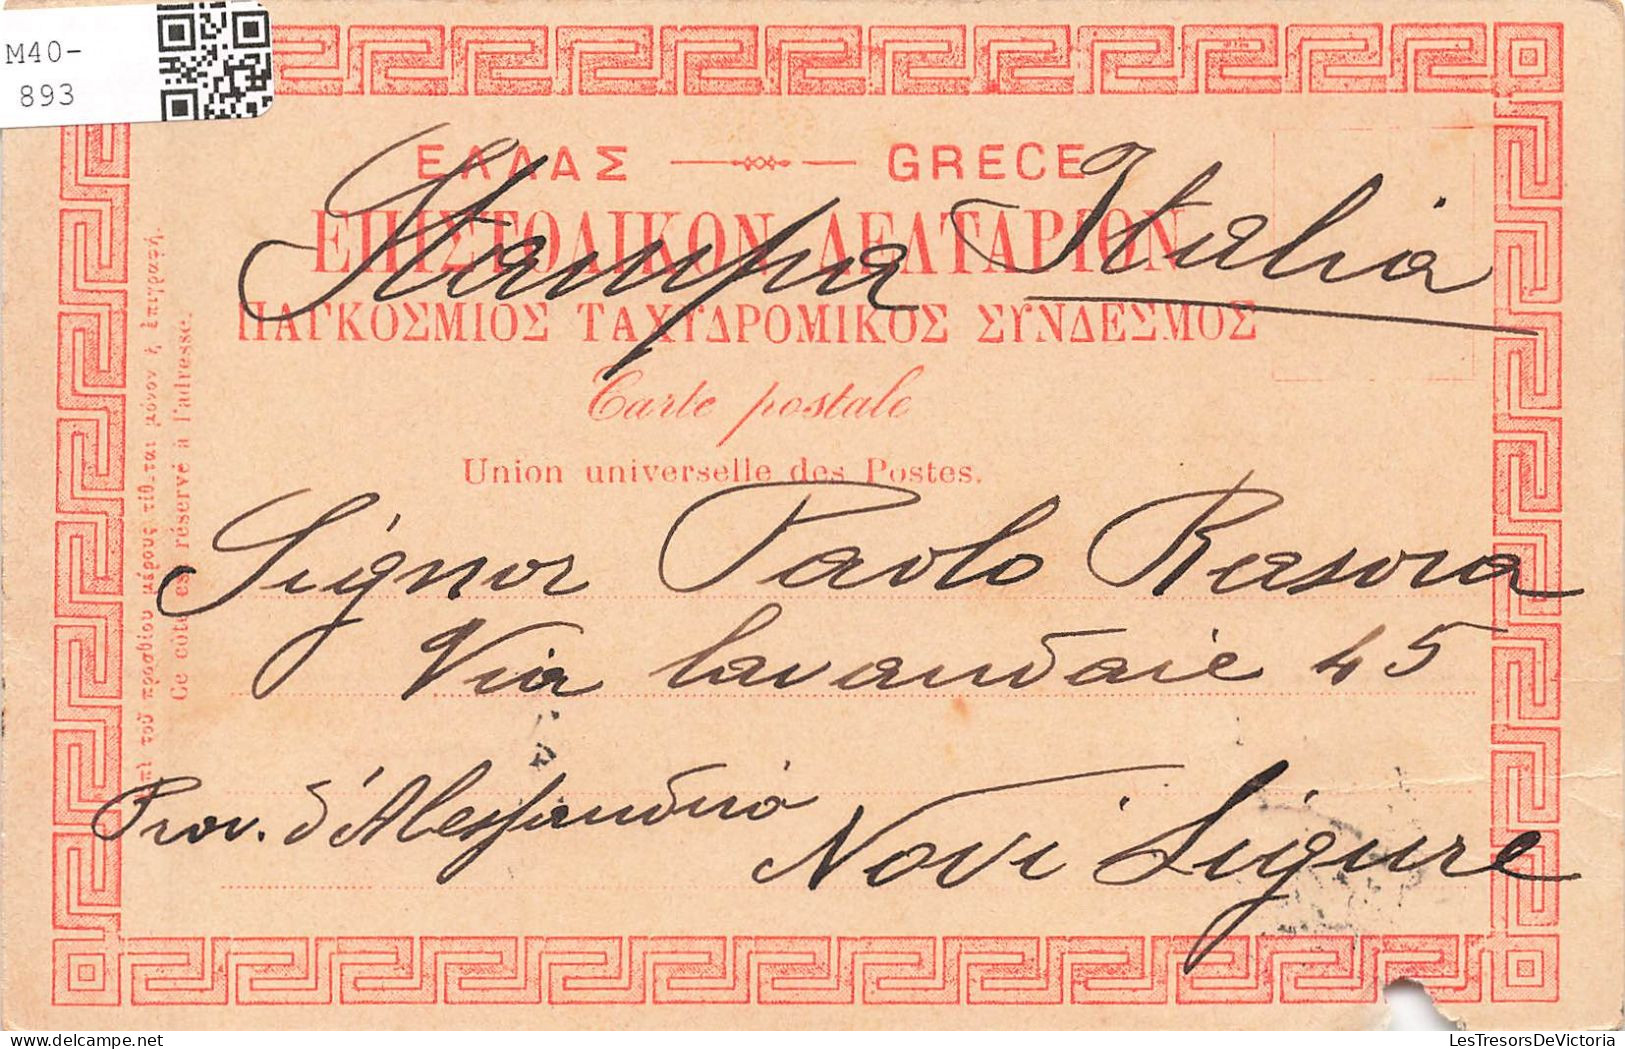 M40-
893
ΕΛΛΑΣ GRECE
Stampa Italia
ΕΠΙΣΤΟΛΙΚΟΝ ΔΕΛΤΑΡΙΟΝ
ΠΑΓΚΟΣΜΙΟΣ ΤΑΧΥΔΡΟΜΙΚΟΣ ΣΥΝΔΕΣΜΟΣ
Carte postale
Union universelle des Postes.
Ἐπὶ τοῦ προσθίου μέρους τίθεται μόνον ἡ ἐπιγραφή.
Ce côté est réservé a l'adresse.
Signor Paolo Rasora
Via lavandaie 45
Prov. d'Alessandria
Novi Ligure
LesTresorsDeVictoria